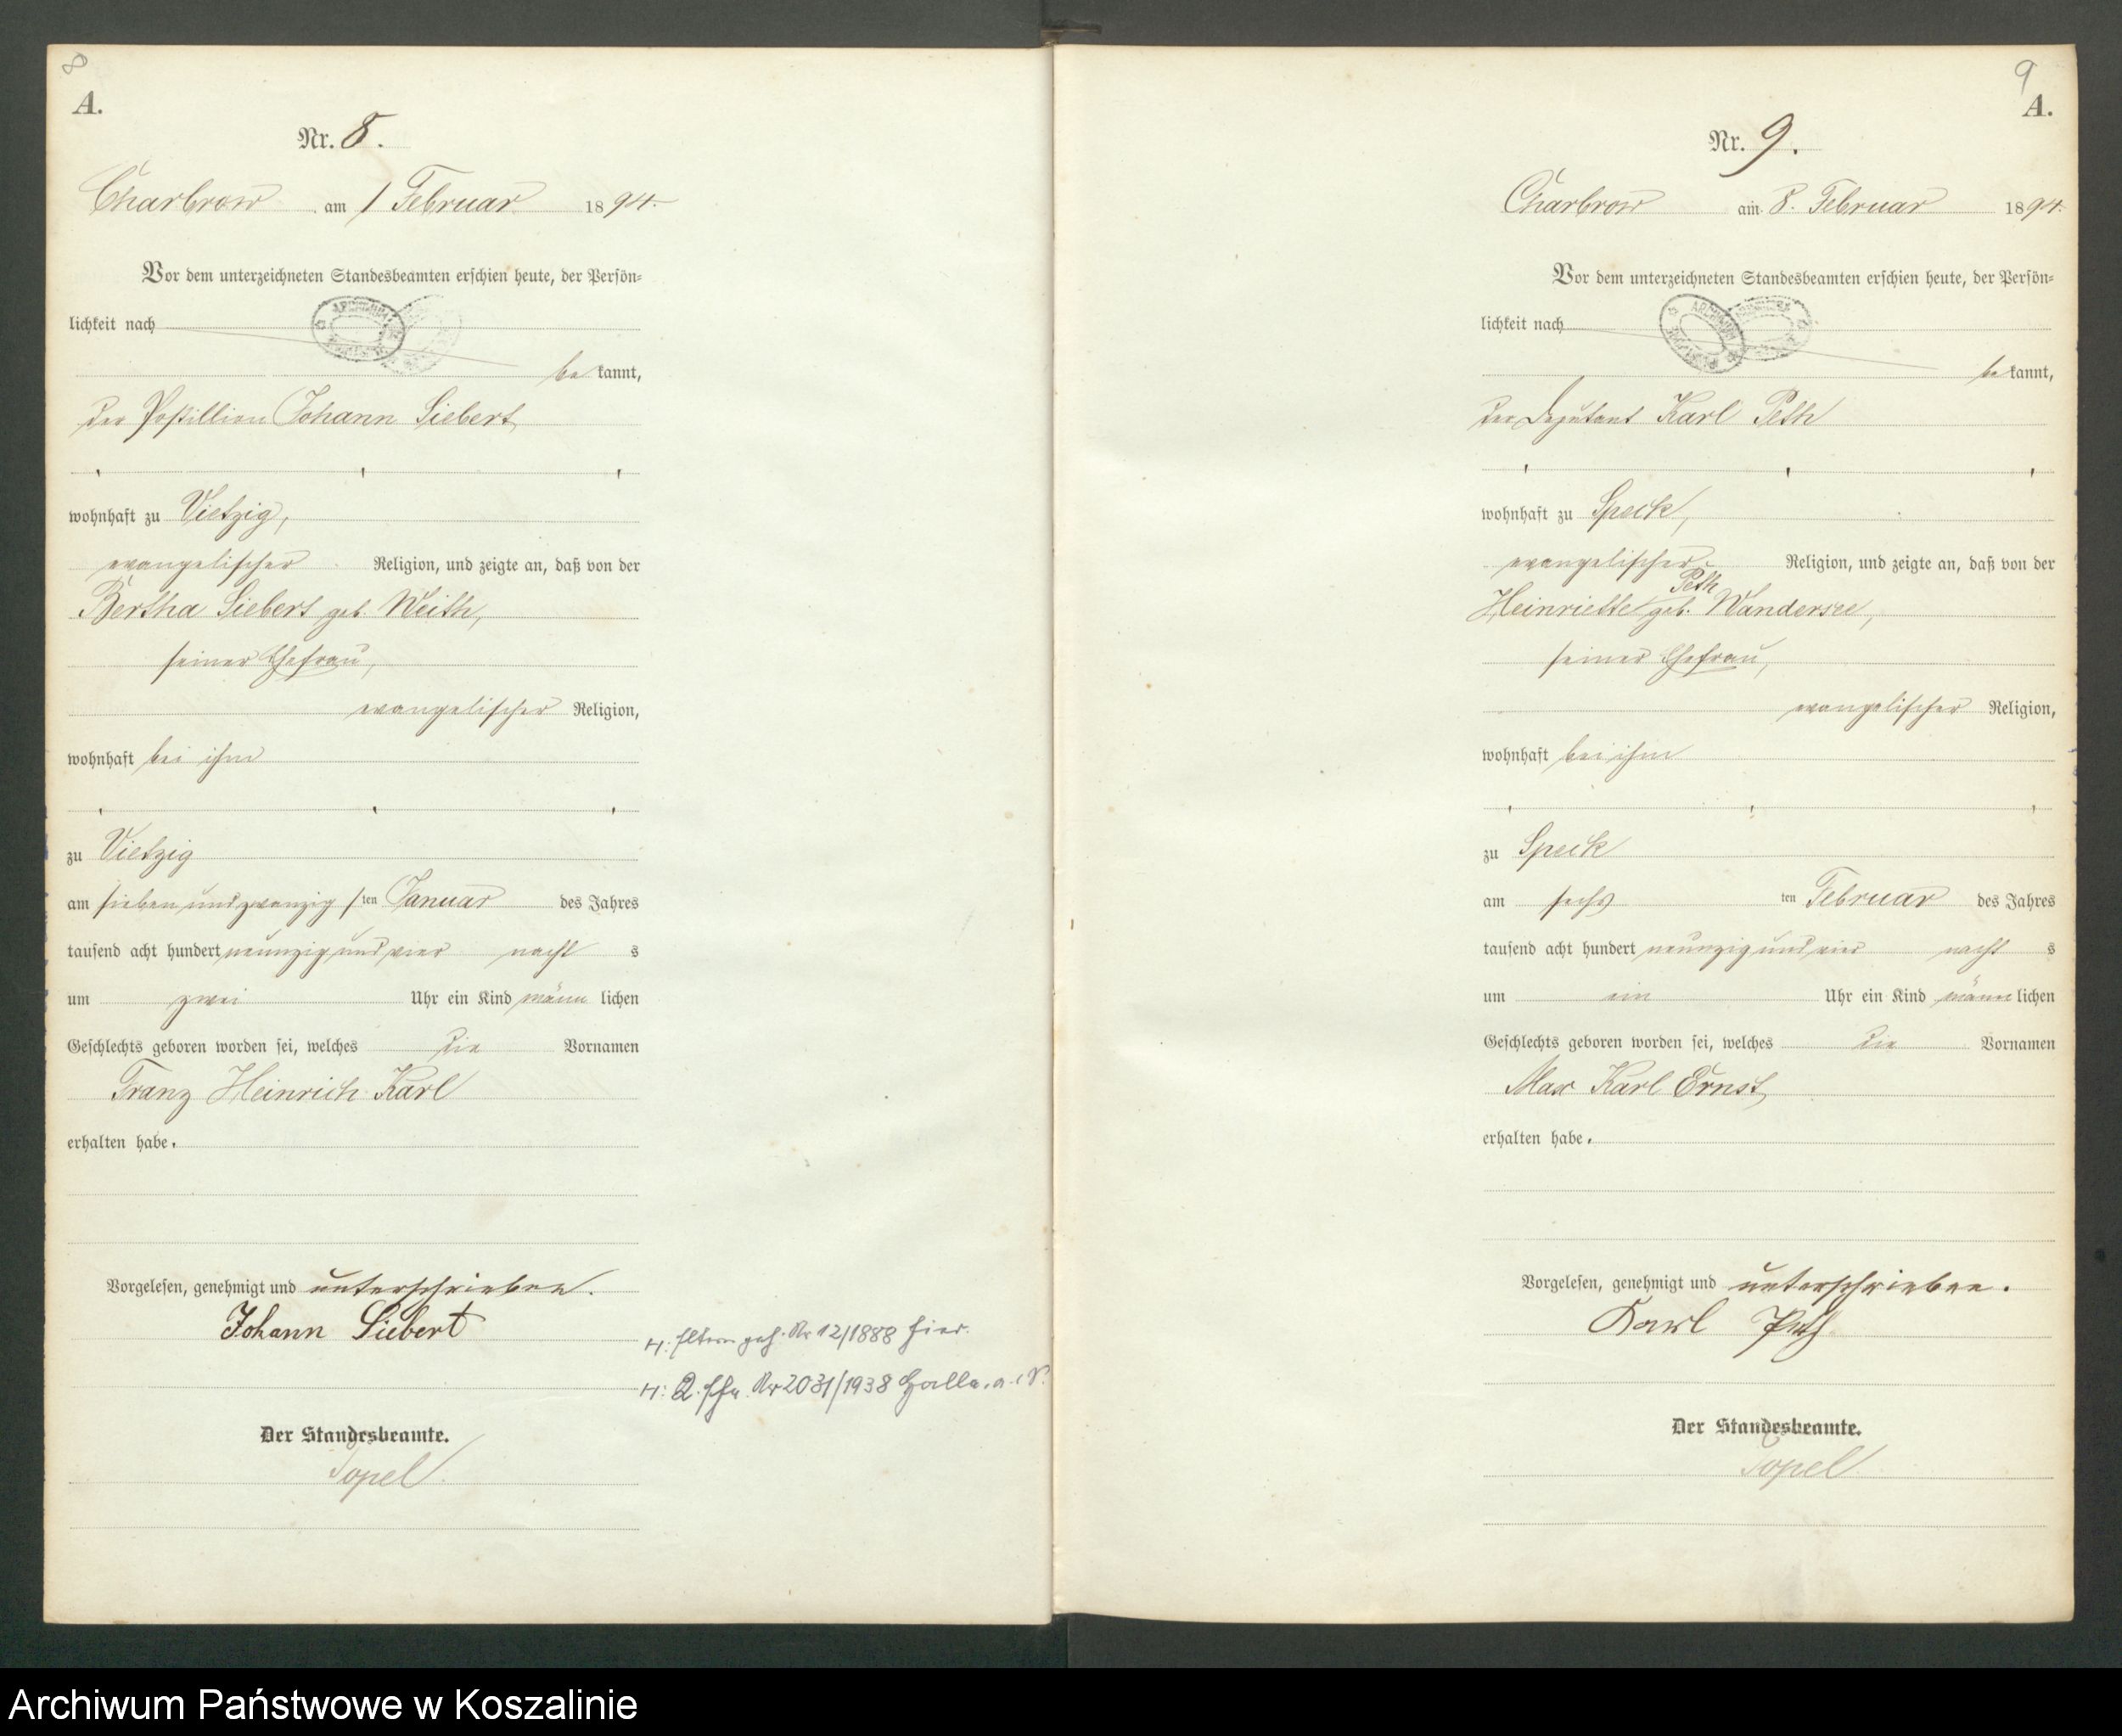 8
A.
Nr. 8.
Charbrow am 1 Februar 1894.
Vor dem unterzeichneten Standesbeamten erschien heute, der Persön-
lichkeit nach
be kannt,
der Postillion Johann Siebert
wohnhaft zu Vietzig,
evangelischer Religion, und zeigte an, daß von der
Bertha Siebert geb. Weith,
seiner Ehefrau,
evangelischer Religion,
wohnhaft bei ihm
zu Vietzig
am sieben und zwanzig sten Januar des Jahres
tausend acht hundert neunzig und vier nacht s
um zwei Uhr ein Kind männ lichen
Geschlechts geboren worden sei, welches die Vornamen
Franz Heinrich Karl
erhalten habe.
Vorgelesen, genehmigt und unterschrieben.
Johann Siebert
H: Eltern geh. Nr 12/1888 hier.
H: 2. Ehe. Nr 2031/1938 Halle. a. S.
Der Standesbeamte.
Topel
9
A.
Nr. 9.
Charbrow am 8. Februar 1894.
Vor dem unterzeichneten Standesbeamten erschien heute, der Persön-
lichkeit nach
be kannt,
der Deputant Karl Peth
wohnhaft zu Speck,
evangelischer Religion, und zeigte an, daß von der
Peth
Heinriette geb. Wandersee,
seiner Ehefrau,
evangelischer Religion,
wohnhaft bei ihm
zu Speck
am sechs ten Februar des Jahres
tausend acht hundert neunzig und vier nacht s
um ein Uhr ein Kind männ lichen
Geschlechts geboren worden sei, welches die Vornamen
Max Karl Ernst
erhalten habe.
Vorgelesen, genehmigt und unterschrieben.
Karl Peth
Der Standesbeamte.
Topel
Archiwum Państwowe w Koszalinie